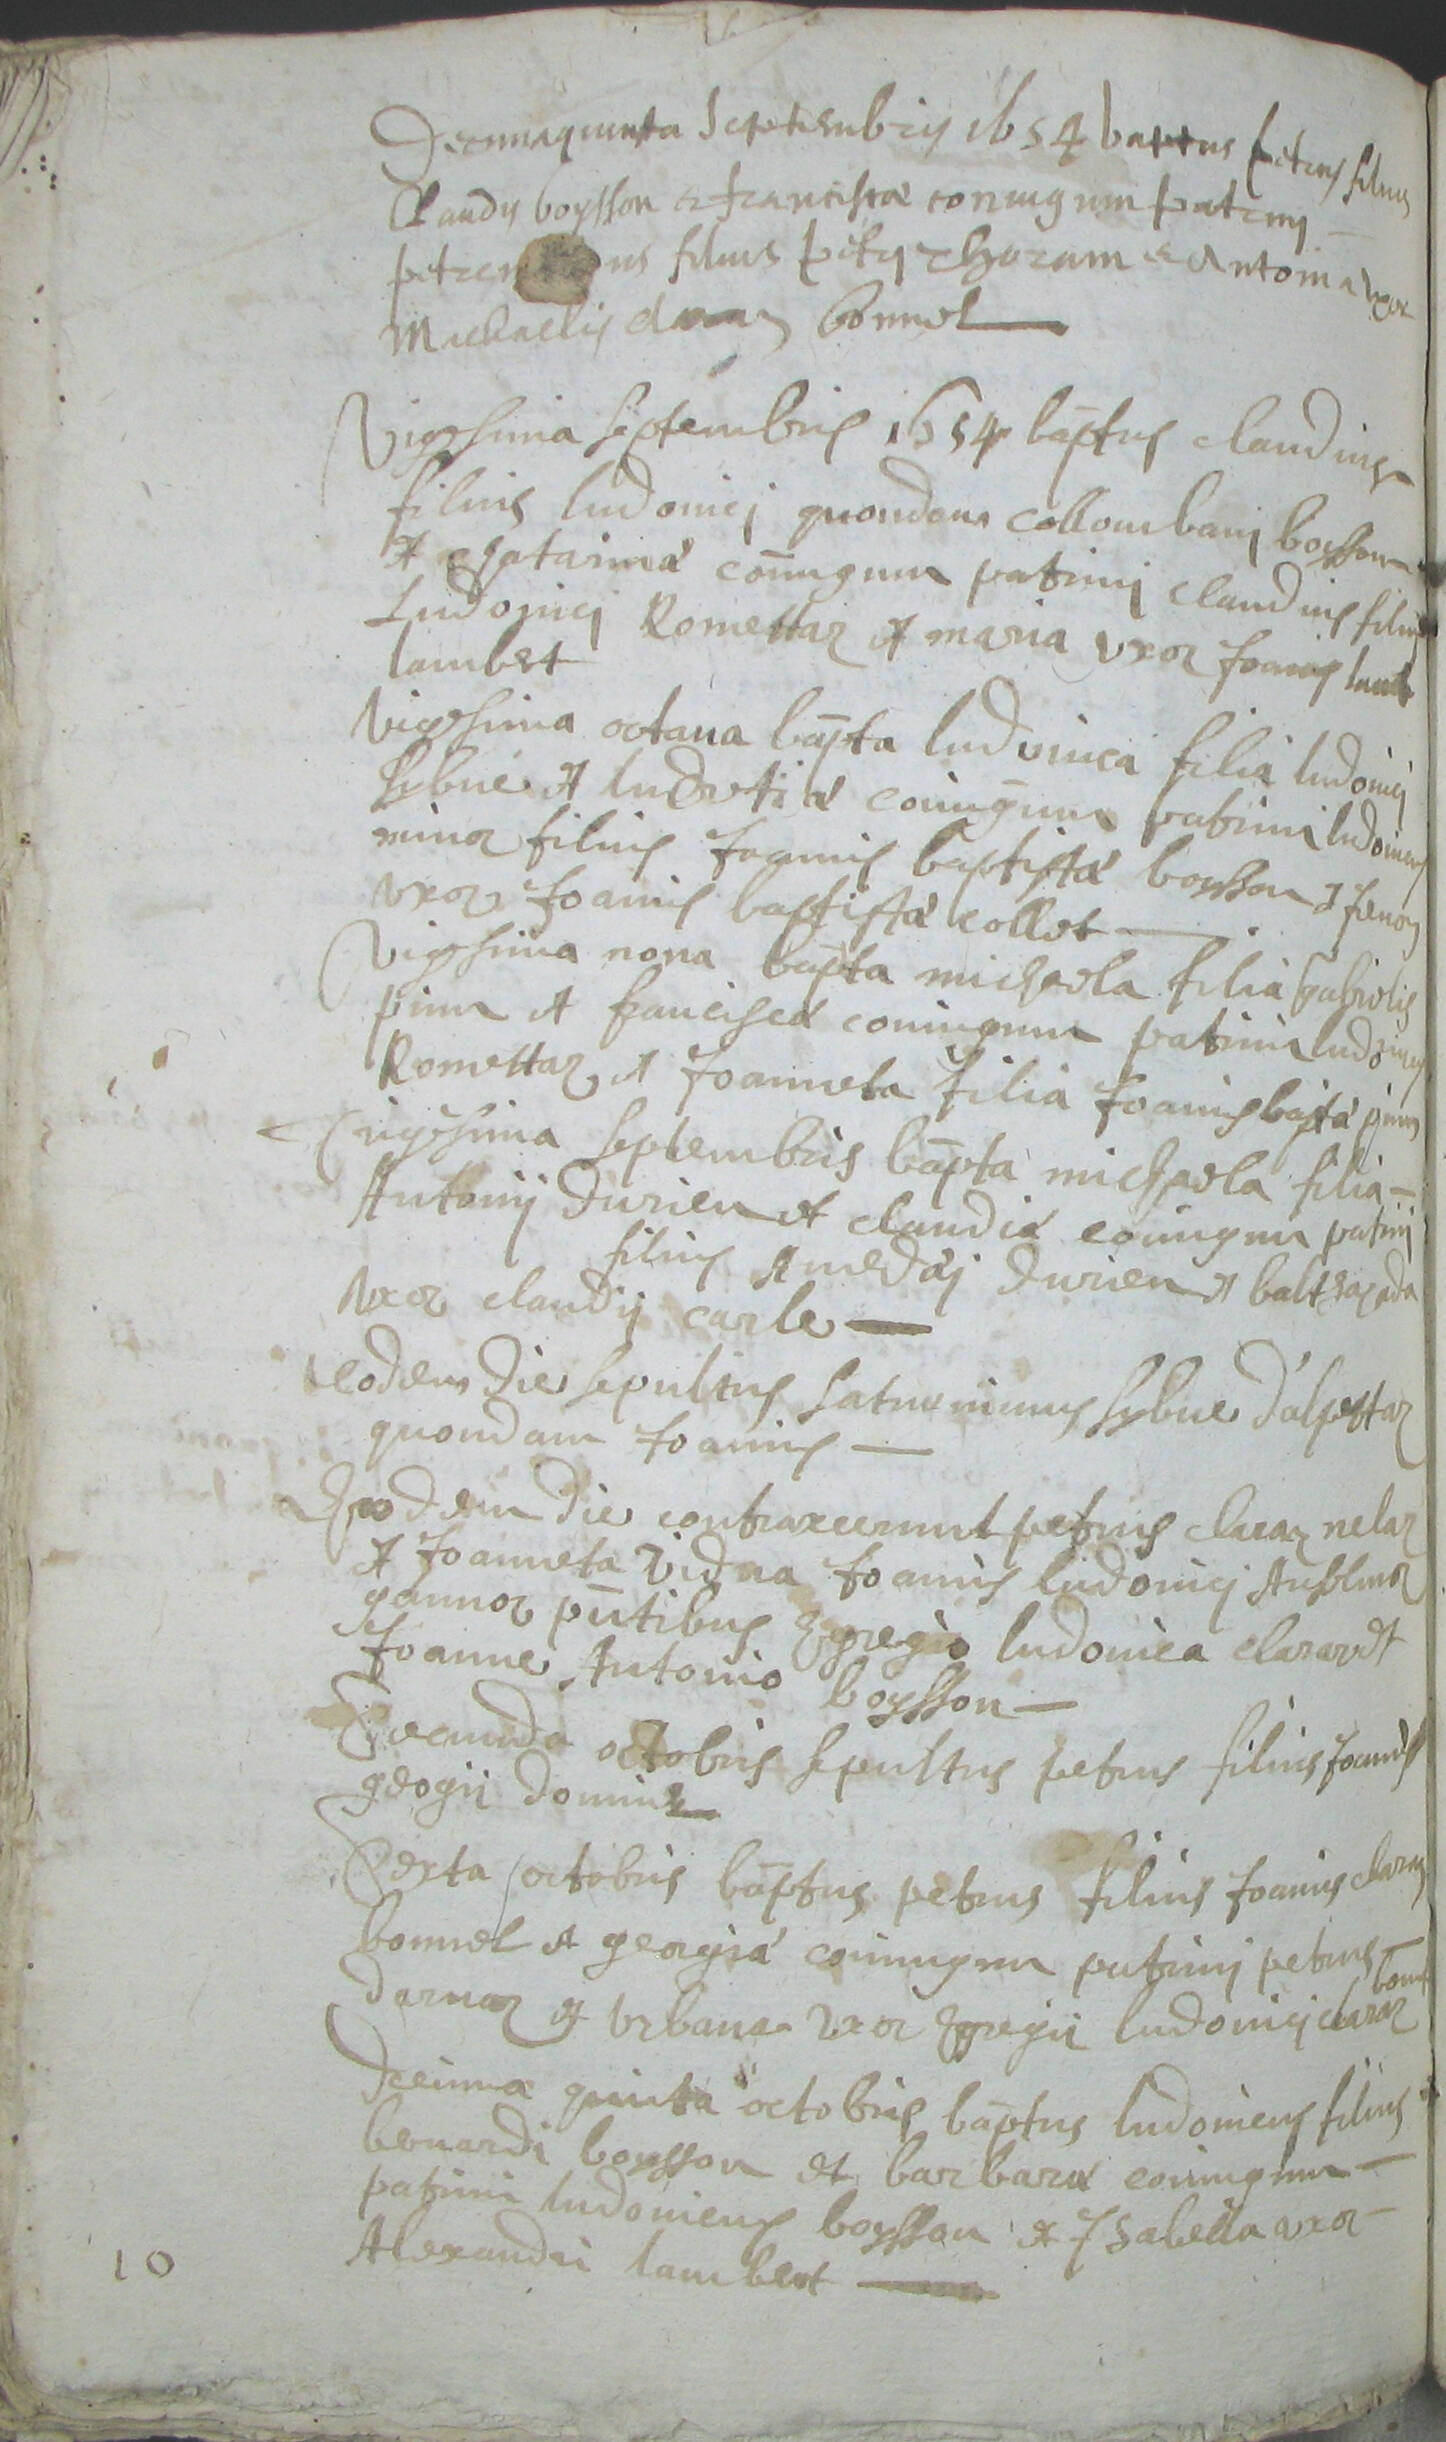 Decimaquinta Septembris 1654 baptus petrus filius
Claudy boysson et francisca coniugum patrini
petrus filius petri choram et Antonia uxor
Michaelis claraz bonnel
Vigesima septembris 1654 baptus claudius
filius ludovici quondam collombani boysson
et Catarina coniugum patrini claudius filius
Ludovici Romettaz et maria uxor Joannis
lambert
vigesima octava bapta ludvuica filia ludovici
sybue et ludvuica coniugum patrini ludovicus
minor filius Joannis baptista boysson et
uxor Joannis baptista collet
Vigesima nona bapta michaela filia gabrielis
pinn et francisca coniugum patrini ludovicus
Romettaz et Joanneta filia Joannis bapta pinn
Trigesima septembris bapta michaela filia
Antonij durieu et claudia coniugum patrini
filius Amedaj durieu et baltsazarda
uxor claudij carle
eodem die sepultus saturninus sybue dalpettaz
quondam Joannis
Eodem die contraxerunt petrus claraz nelaz
et Joanneta vidua Joannis ludovici Anselmoz
gannoz pntibus Egregio ludovico claraz et
Joanne Antonio boysson
Secunda octobris sepultus petrus filius Joannis
geogii domine
Sexta octobris baptus petrus filius Joannis claraz
bonnel et georgia coniugum patrini petrus
darnaz et urbana uxor Egregii ludovici claraz bonel
Decima quinta octobris baptus ludovicus filius
benardi boysson et barbara coniugum
patrini ludovicus boysson et Isabella uxor
Alexandri lambert
10